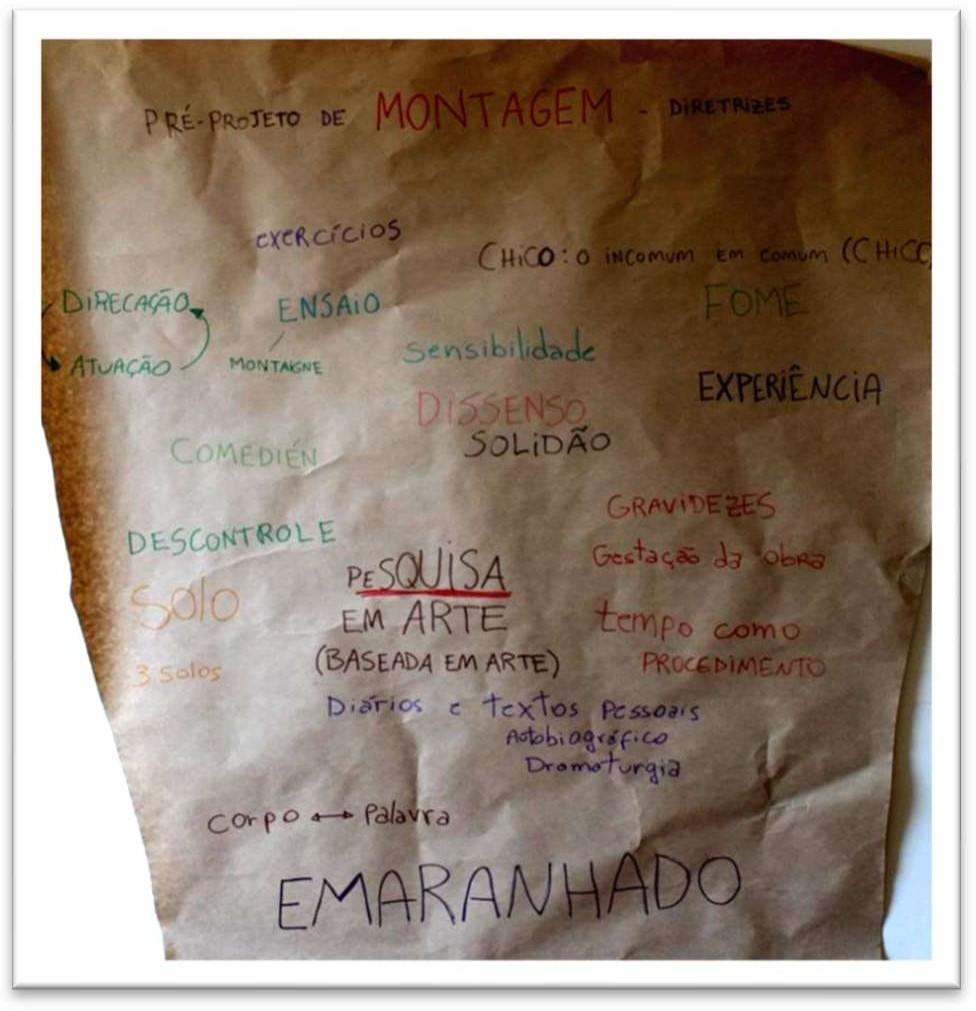 PRÉ-PROJETO DE MONTAGEM - DIRETRIZES
exercícios
CHICO: O INCOMUM EM COMUM (CHICO
DIRECAÇÃO
ENSAIO
FOME
ATUAÇÃO
MONTAIGNE
Sensibilidade
EXPERIÊNCIA
DISSENSO
SOLIDÃO
COMEDIÉN
GRAVIDEZES
DESCONTROLE
Gestação da obra
PESQUISA
EM ARTE
(BASEADA EM ARTE)
Solo
tempo como
PROCEDIMENTO
3 Solos
Diários e textos pessoais
Autobiográfico
Dramaturgia
Corpo ↔ Palavra
EMARANHADO